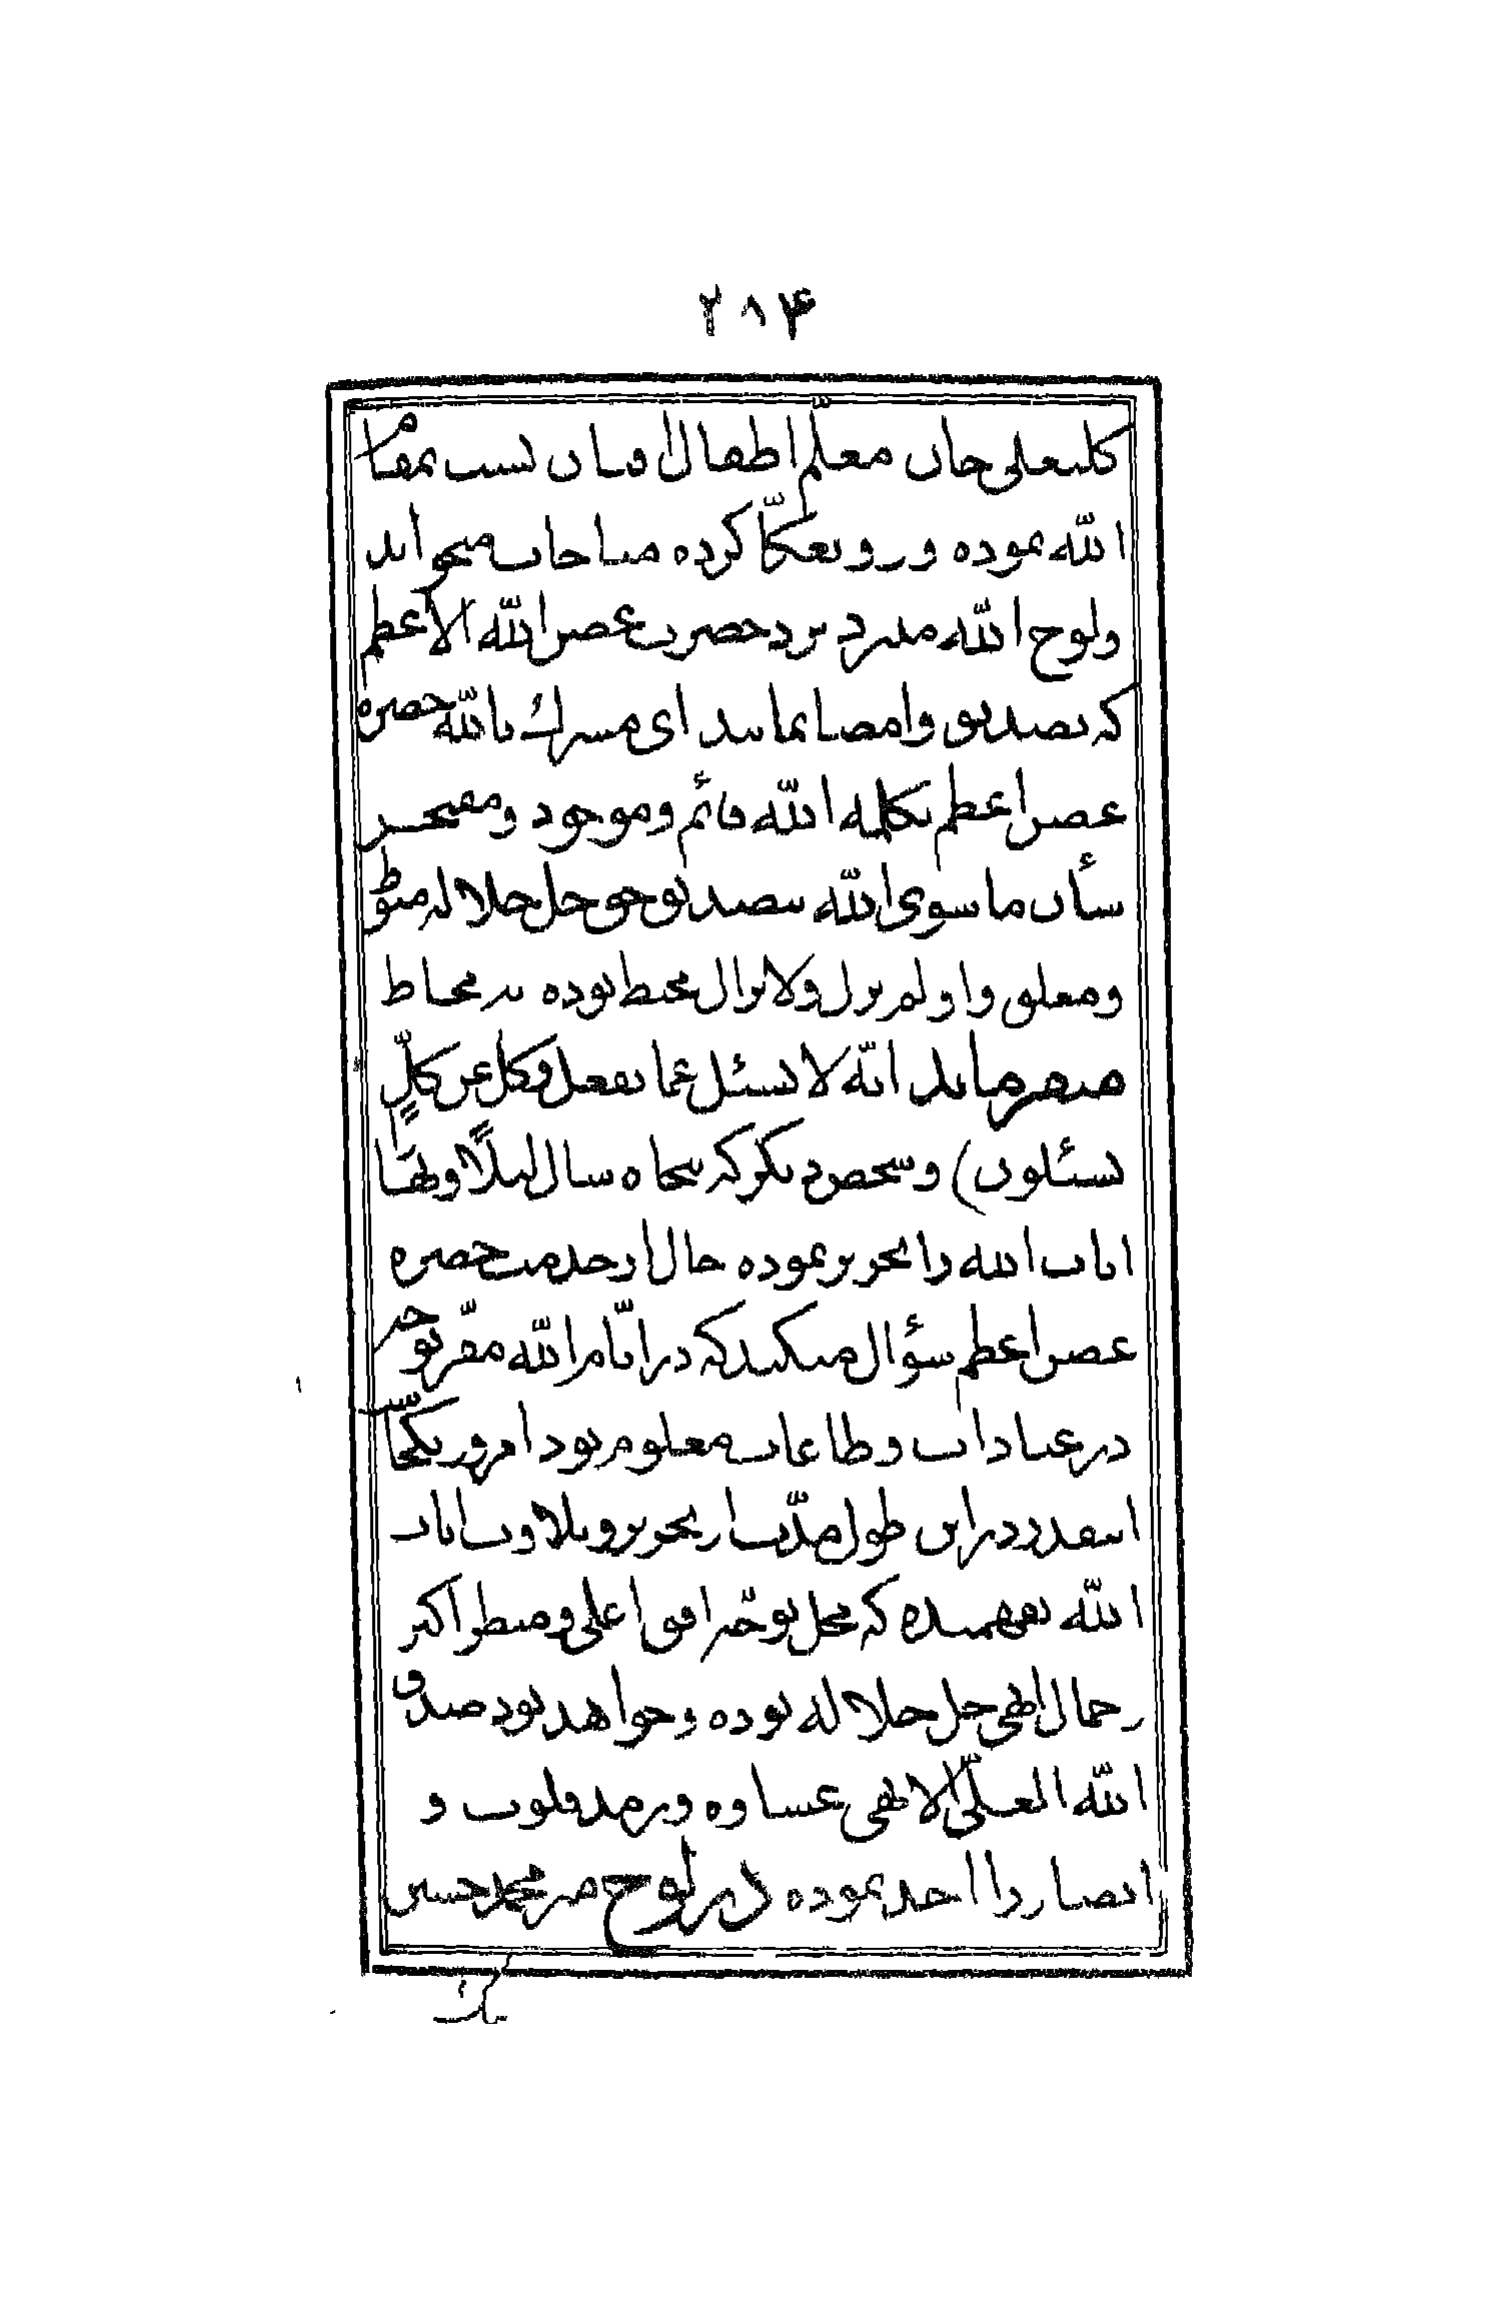 ۲۸۴
کلبعلی خان معلّم اطفال اوسان نسبت بمقام
الله نموده و رو بعکّا کرده مناجات میخواند
ولوح الله میبرد نزد حضرت غصن الله الاعظم
که تصدیق وامضا نمائید ای مشرک بالله حضرة
غصن اعظم بکلمه الله قائم وموجود ومفتخر
شأن ما سوی الله بتصدیق حق جل جلاله منوط
ومعلق واو لم یزل ولا یزال محیط بوده نه محاط
میفرماید انّه لا یسئل عما یفعل وکل عن کلٍّ
یسئلون) وشخص دیگر که پنجاه سال لیلاً ونهارا
ایات الله را تحریر نموده حال از خدمت حضرة
غصن اعظم سؤال میکند که در ایّام الله مقرّ توجه
در عبادات وطاعات معلوم بود امروز بکجاست
اینقدر در این طول مدّت از تحریر و تلاوت ایات
الله نفهمیده که محل توجّه افق اعلی ومنظر اکبر
جمال ابهی جل جلاله بوده وخواهد بود صدق
الله العلیّ الابهی غشاوه و رمد قلوب و
ابصار را اخذ نموده در لوح میر محمد حسین
بیک